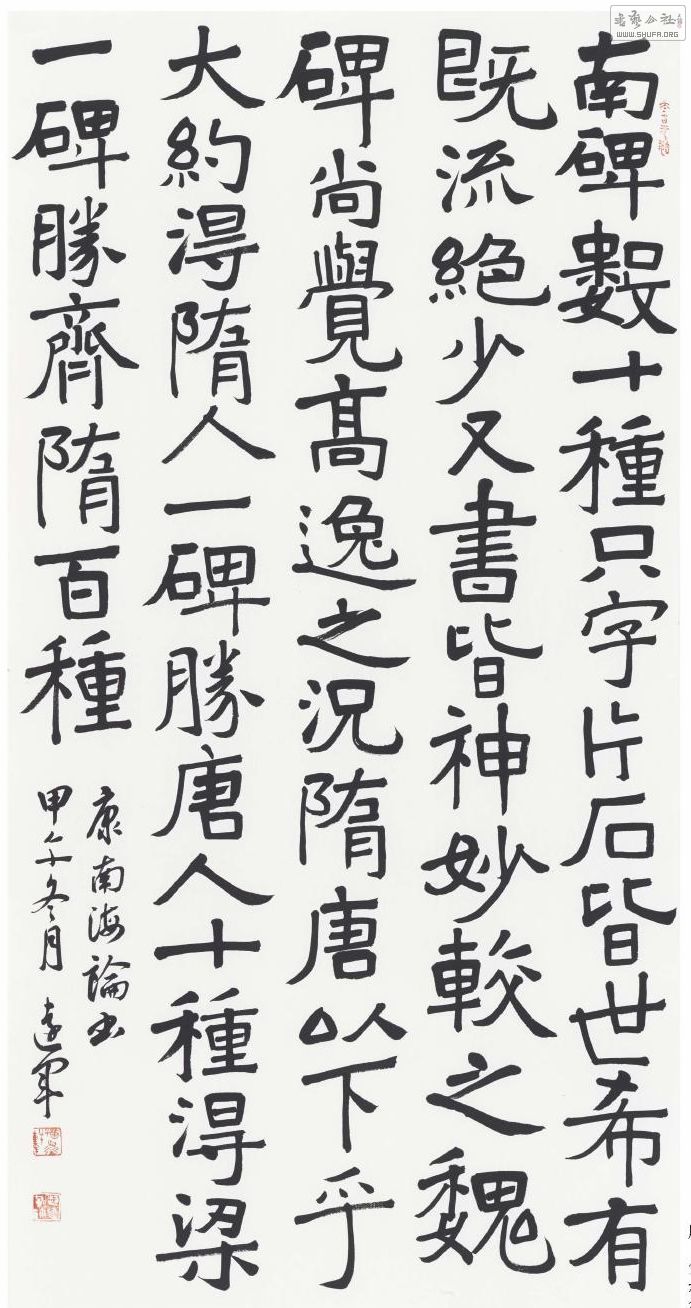 南碑數十種只字片石皆世希有
既流絕少又書皆神妙較之魏
碑尚覺高逸之況隋唐以下乎
大約得隋人一碑勝唐人十種得梁
一碑勝齊隋百種
康南海論書
甲午冬月 遠軍
WWW.SHUFA.ORG